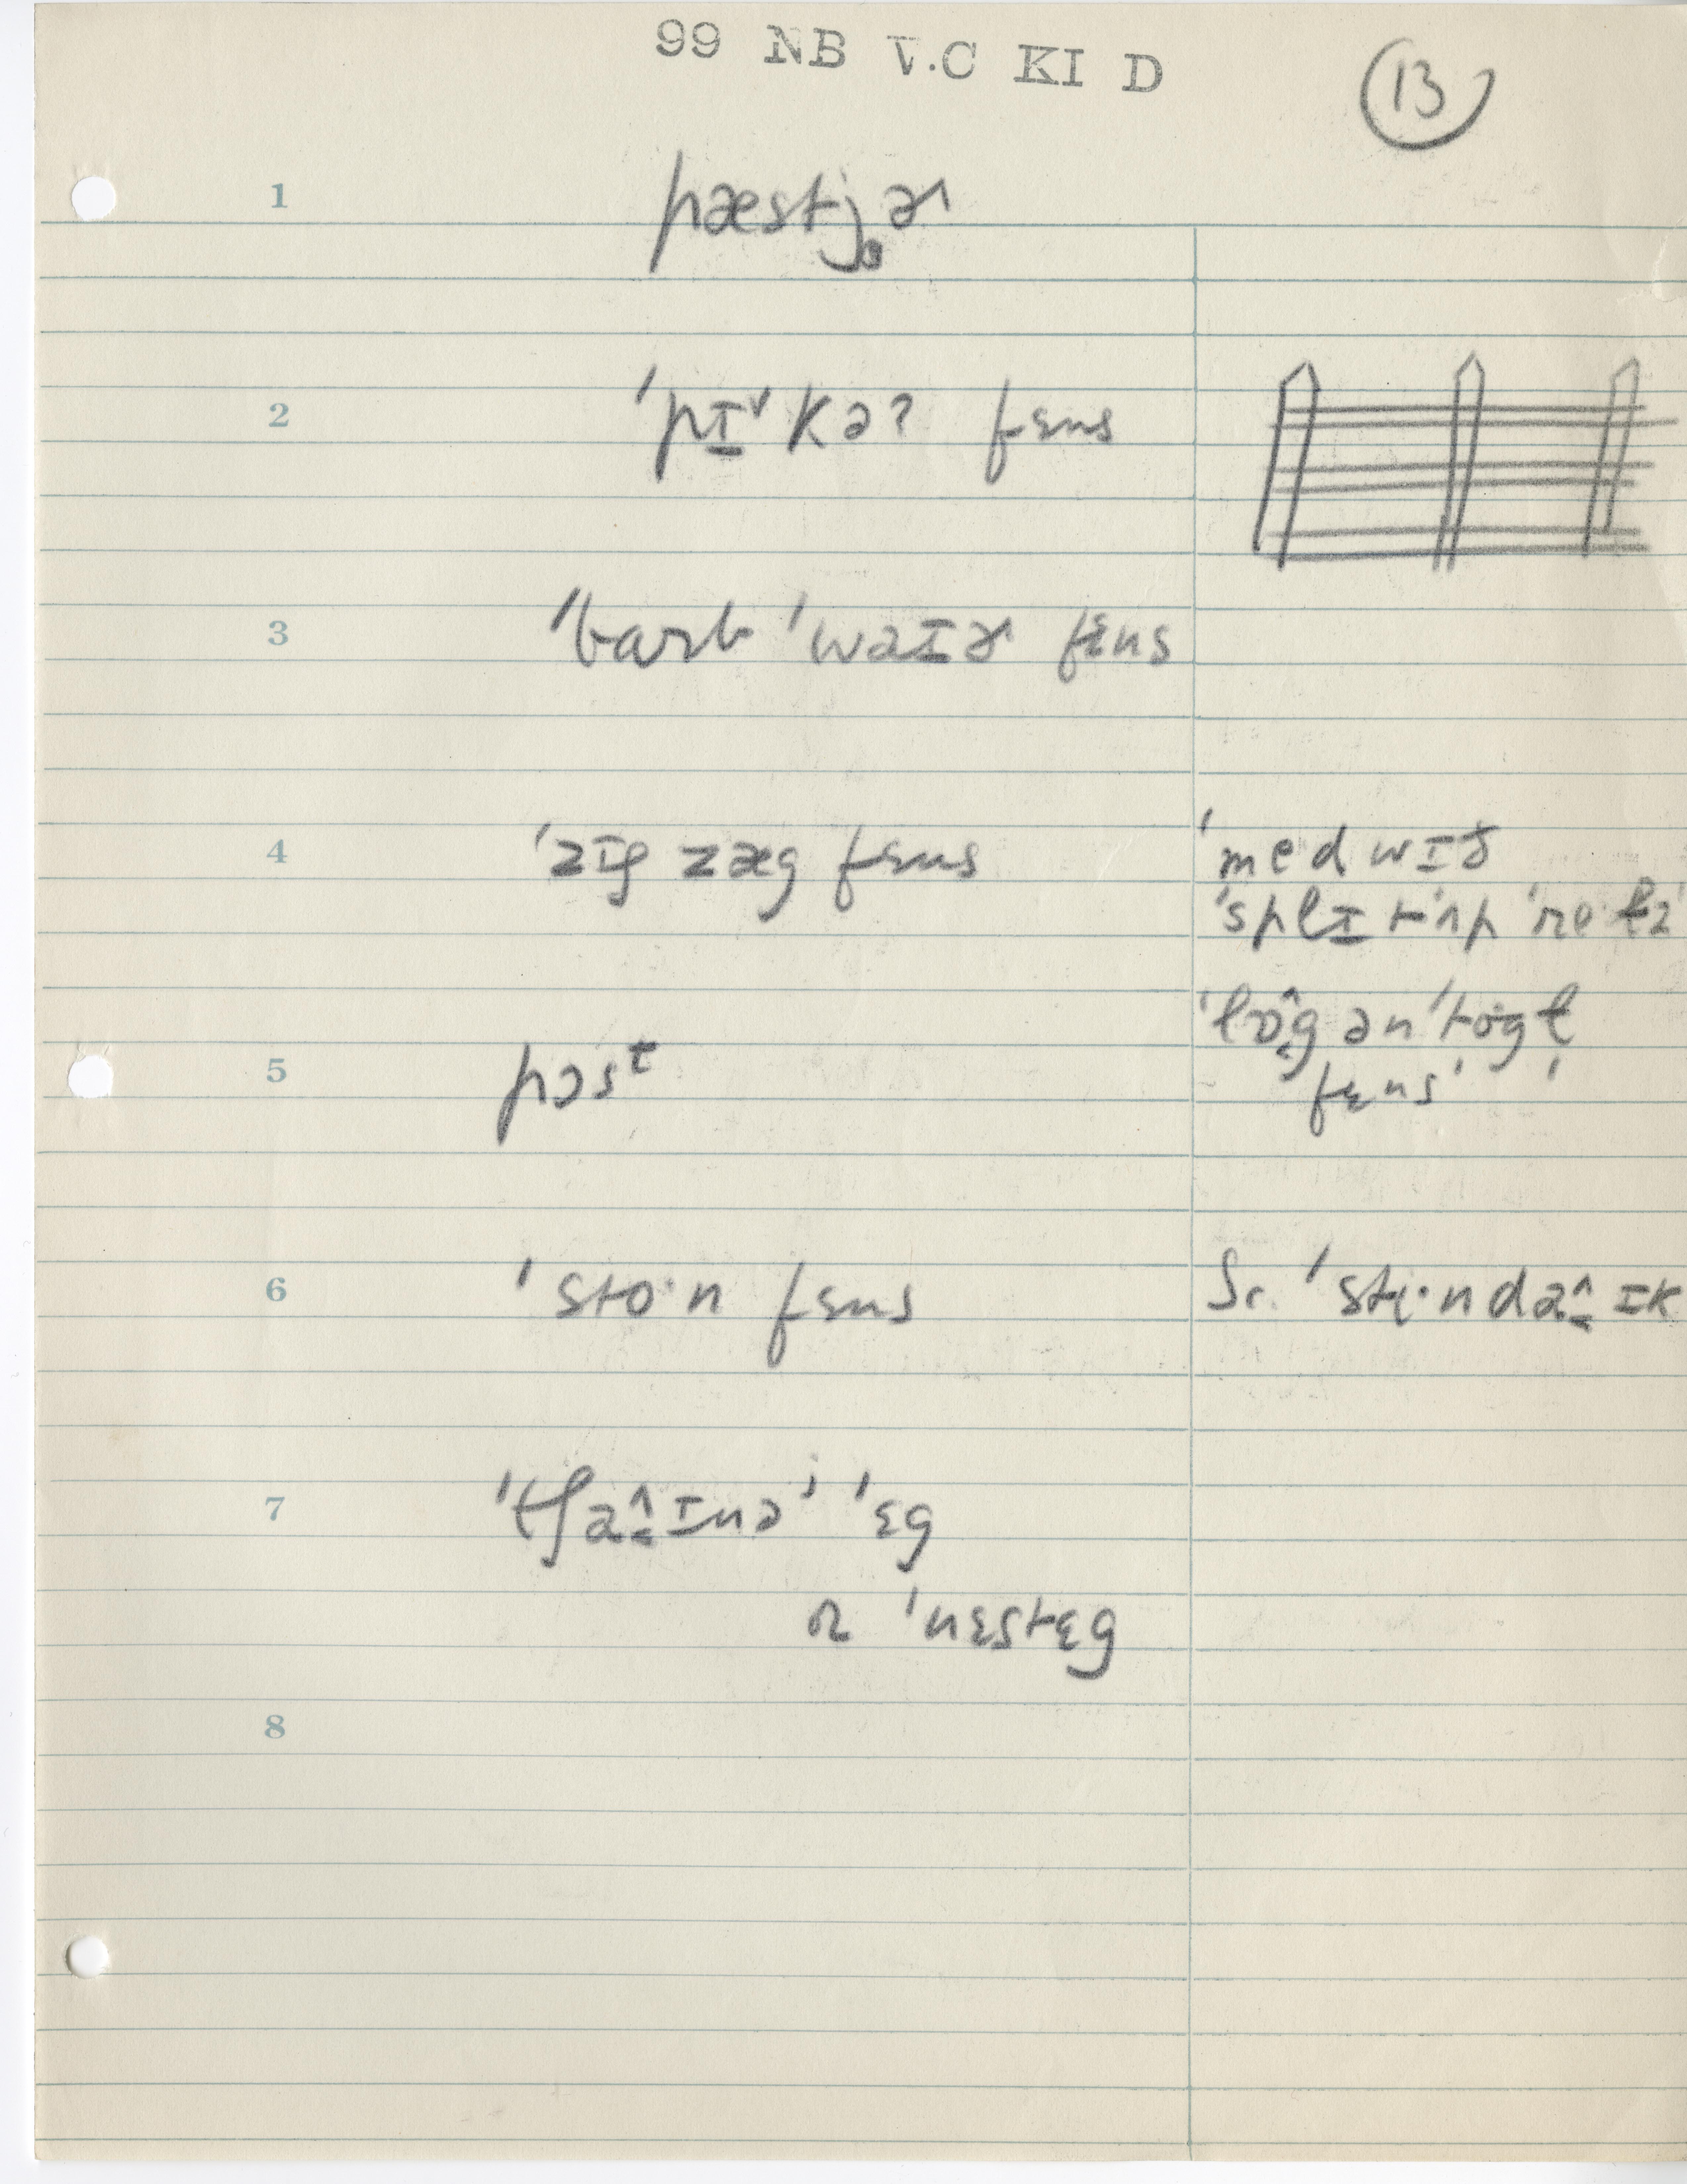 99 NB V.C KI D
13
1
pæstj̥ɚ
2
ˈpɪ̱˅kəʔ fɛns
3
ˈbarb ˈwaɪɚ fɛns
4
ˈzɪg zæg fɛns
ˈmed wɪð
ˈsplɪt ˈʌp ˈre
5
pɔsᵗ
ən
fɛns
6
ˈsto·n fɛns
Sc. ˈsti·ndaɪk
7
ˈtʃaɪnəˈ ˈɛg
ɒ ˈnɛstɛg
8